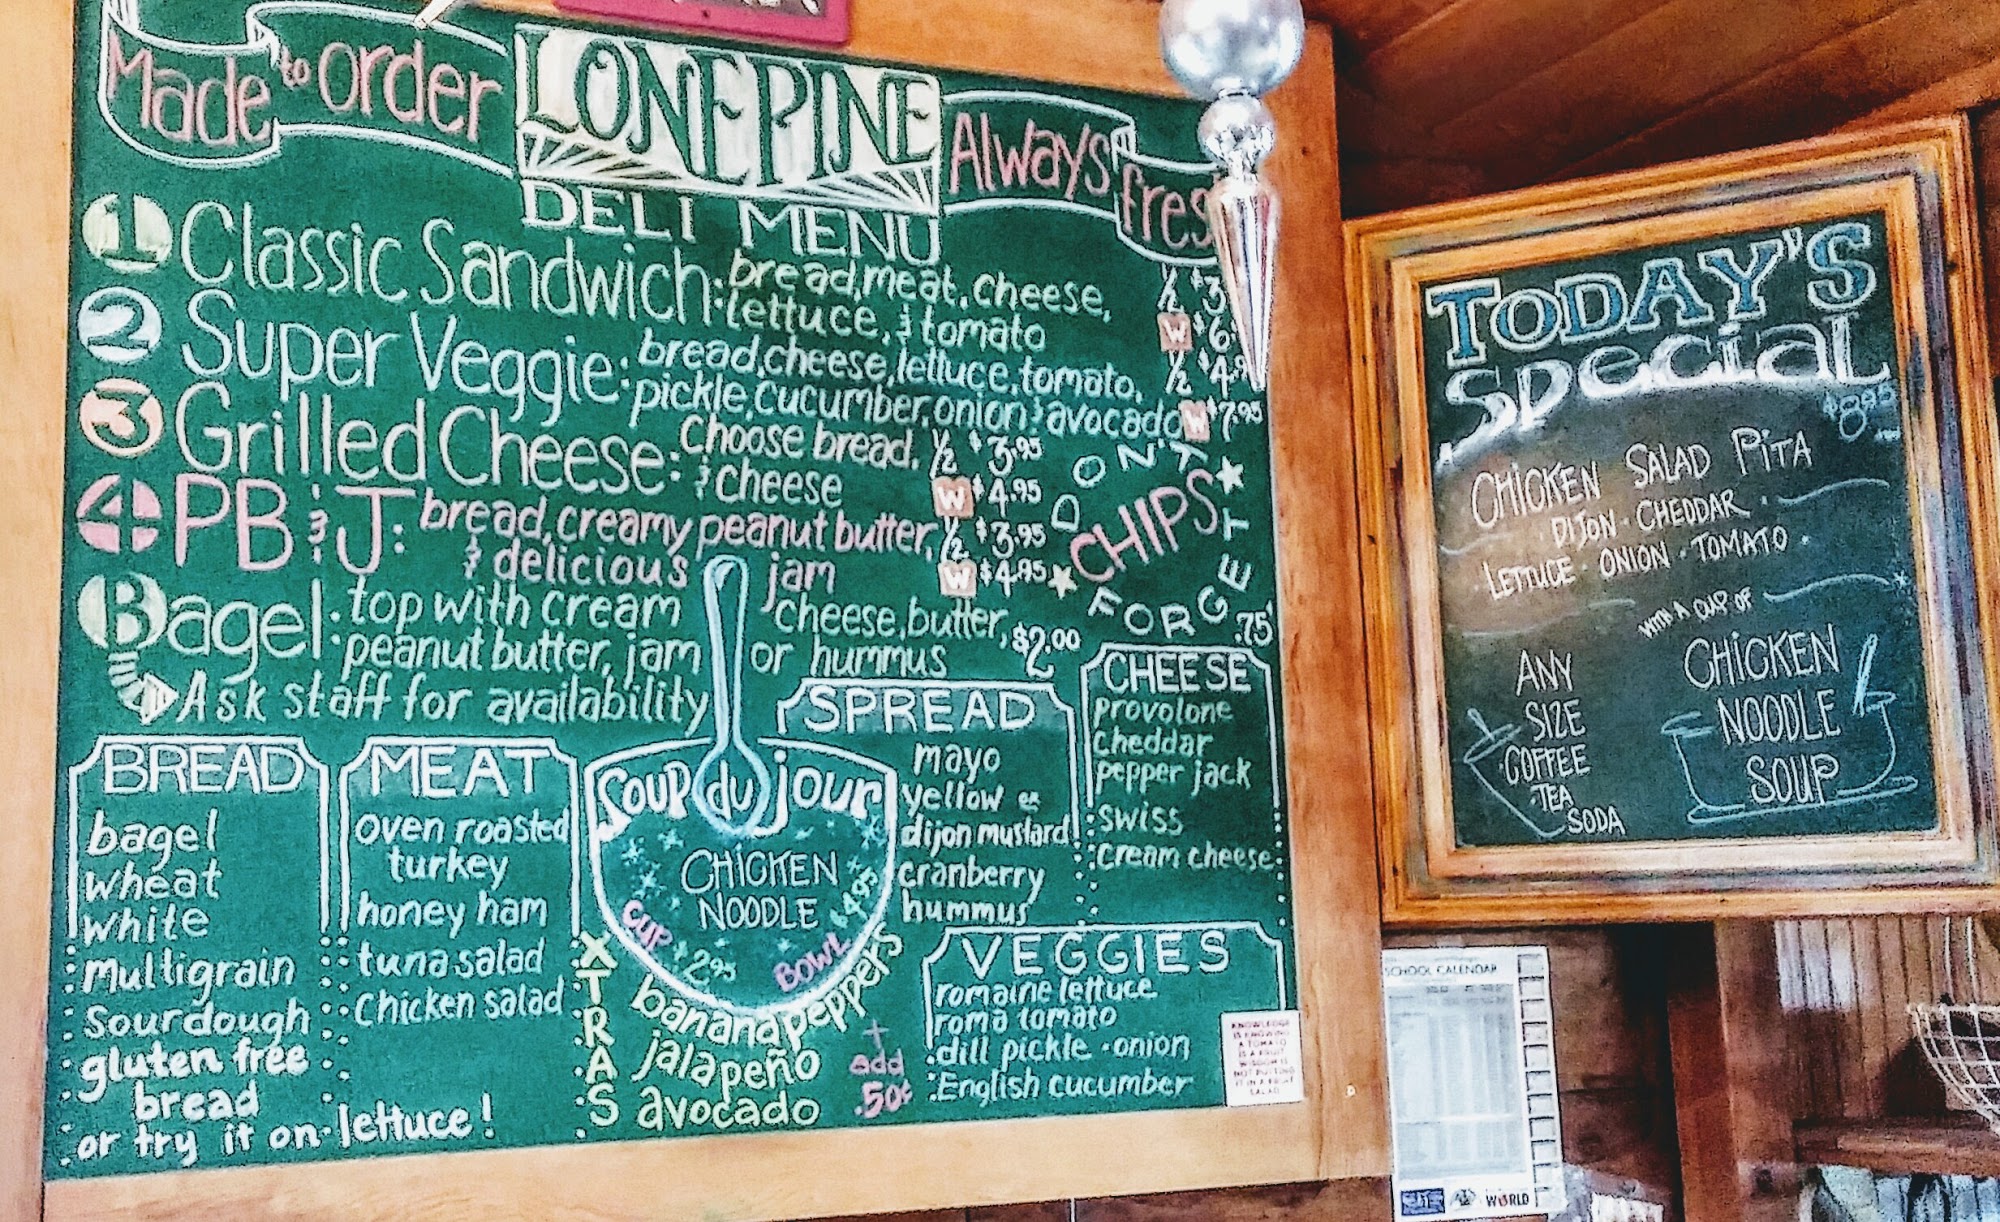 Made to order
LONE PINE
Always
DELI MENU
1 Classic Sandwich: bread, meat, cheese,
lettuce, & tomato
½ $3
W $6
2 Super Veggie: bread, cheese, lettuce, tomato,
pickle, cucumber, onion & avocado
½ $4.9
W $7.95
3 Grilled Cheese: Choose bread,
& cheese
½ $3.95
W $4.95
4 PB & J: bread, creamy peanut butter,
& delicious jam
½ $3.95
W $4.95
DON'T
FORGET
CHIPS
.75
Bagel: top with cream cheese, butter,
peanut butter, jam or hummus $2.00
Ask staff for availability
BREAD
bagel
wheat
white
multigrain
sourdough
gluten free
bread
or try it on lettuce!
MEAT
oven roasted
turkey
honey ham
tuna salad
chicken salad
SOUP du jour
CHICKEN
NOODLE
CUP $2.95
BOWL $4.95
XTRAS
banana peppers
jalapeño
avocado
+
add
.50¢
SPREAD
mayo
yellow or
dijon mustard
cranberry
hummus
CHEESE
provolone
cheddar
pepper jack
swiss
cream cheese
VEGGIES
romaine lettuce
roma tomato
dill pickle · onion
English cucumber
KNOWLEDGE
IS KNOWING
A TOMATO
IS A FRUIT
WISDOM IS
NOT PUTTING
IT IN A FRUIT
SALAD
TODAY'S
SPECIAL
$8.95
CHICKEN SALAD PITA
DIJON · CHEDDAR ·
· LETTUCE · ONION · TOMATO ·
WITH A CUP OF
CHICKEN
NOODLE
SOUP
ANY
SIZE
· COFFEE
· TEA
· SODA
SCHOOL CALENDAR
WORLD